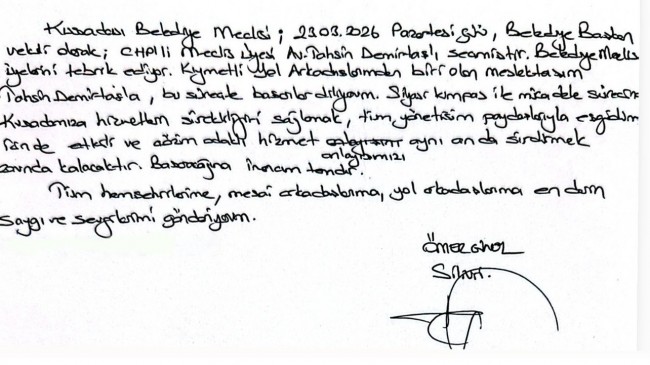 Kuşadası Belediye Meclisi; 23.03.2026 Pazartesi günü, Belediye Başkan
vekili olarak; CHP'li Meclis üyesi Av. Tahsin Demirtaş'ı seçmiştir. Belediye Meclis
üyelerini tebrik ediyor. Kıymetli Yol Arkadaşlarımdan biri olan meslektaşım
Tahsin Demirtaş'a, bu süreçte başarılar diliyorum. Siyasi kumpas ile mücadele sürecinde
Kuşadamıza hizmetlerin sürekliliğini sağlamak, tüm yönetişim paydaşlarıyla eşgüdüm
içinde etkili ve çözüm odaklı hizmet anlayışımızı aynı anda sürdürmek
zorunda kalacaktır. Başaracağına inancım tamdır.
Tüm hemşehrilerime, mesai arkadaşlarıma, yol arkadaşlarıma en derin
saygı ve sevgilerimi gönderiyorum.
ÖMER GÜNEL